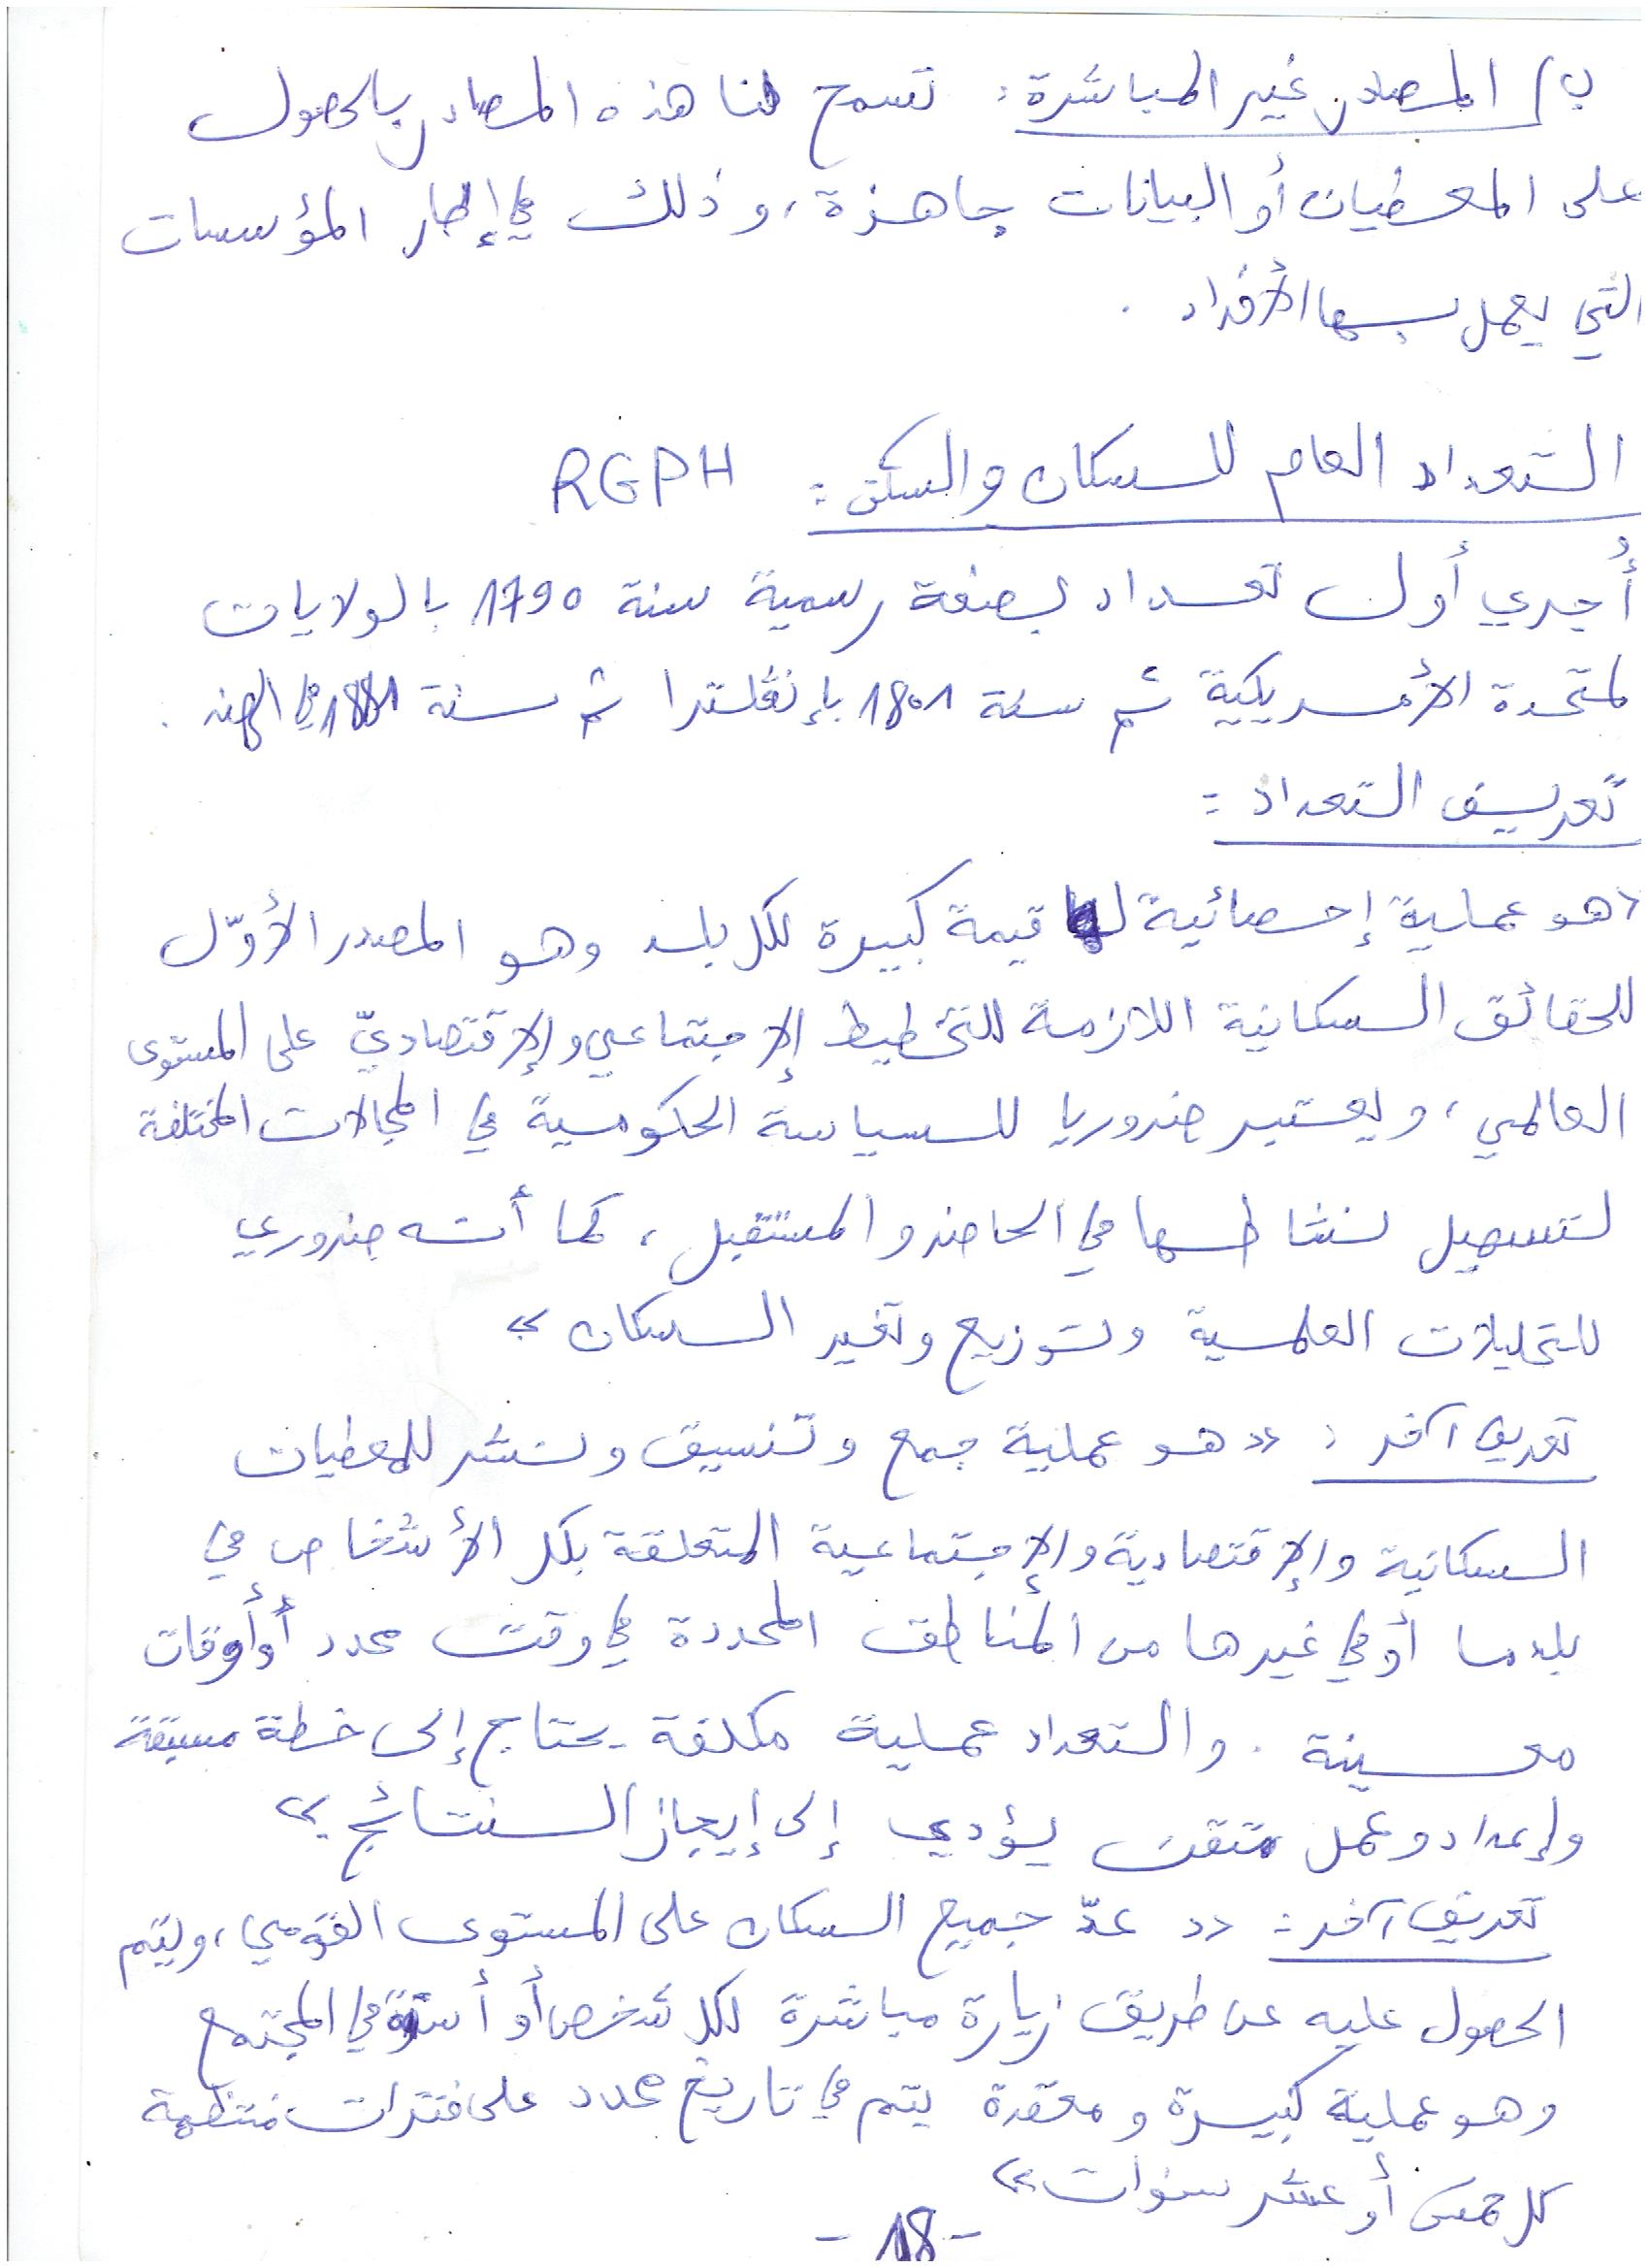 ب/ المصادر غير المباشرة: تسمح لنا هذه المصادر بالحصول
على المعطيات أو البيانات جاهزة، وذلك في إطار المؤسسات
التي يعمل بها الأفراد.
التعداد العام للسكان والسكن: RGPH
أُجري أول تعداد بصفة رسمية سنة 1790 بالولايات
لمتحدة الأمريكية ثم سنة 1801 بإنڤلترا ثم سنة 1881 في الهند.
تعريف التعداد:
«هو عملية إحصائية لها قيمة كبيرة لكل بلد وهو المصدر الأوّل
للحقائق السكانية اللازمة للتخطيط الإجتماعي والإقتصاديّ على المستوى
العالمي، ويعتبر ضروريا للسياسة الحكومية في المجالات المختلفة
لتسهيل نشاطها في الحاضر والمستقبل، كما أنه ضروري
للتحليلات العلمية وتوزيع وتغير السكان»
تعريف آخر: «هو عملية جمع وتنسيق ونشر للمعطيات
السكانية والإقتصادية والإجتماعية المتعلقة بكل الأشخاص في
بلد ما أو في غيرها من المناطق المحددة في وقت محدد أو أوقات
معينة. والتعداد عملية مكلفة يحتاج إلى خطة مسبقة
وإعداد وعمل متقن يؤدي إلى إيجاز النتائج»
تعريف آخر: «عدّ جميع السكان على المستوى القومي، ويتم
الحصول عليه عن طريق زيارة مباشرة لكل شخص أو أسرة في المجتمع
وهو عملية كبيرة ومعقدة يتم في تاريخ محدد على فترات منتظمة
كل خمس أو عشر سنوات»
- 18 -